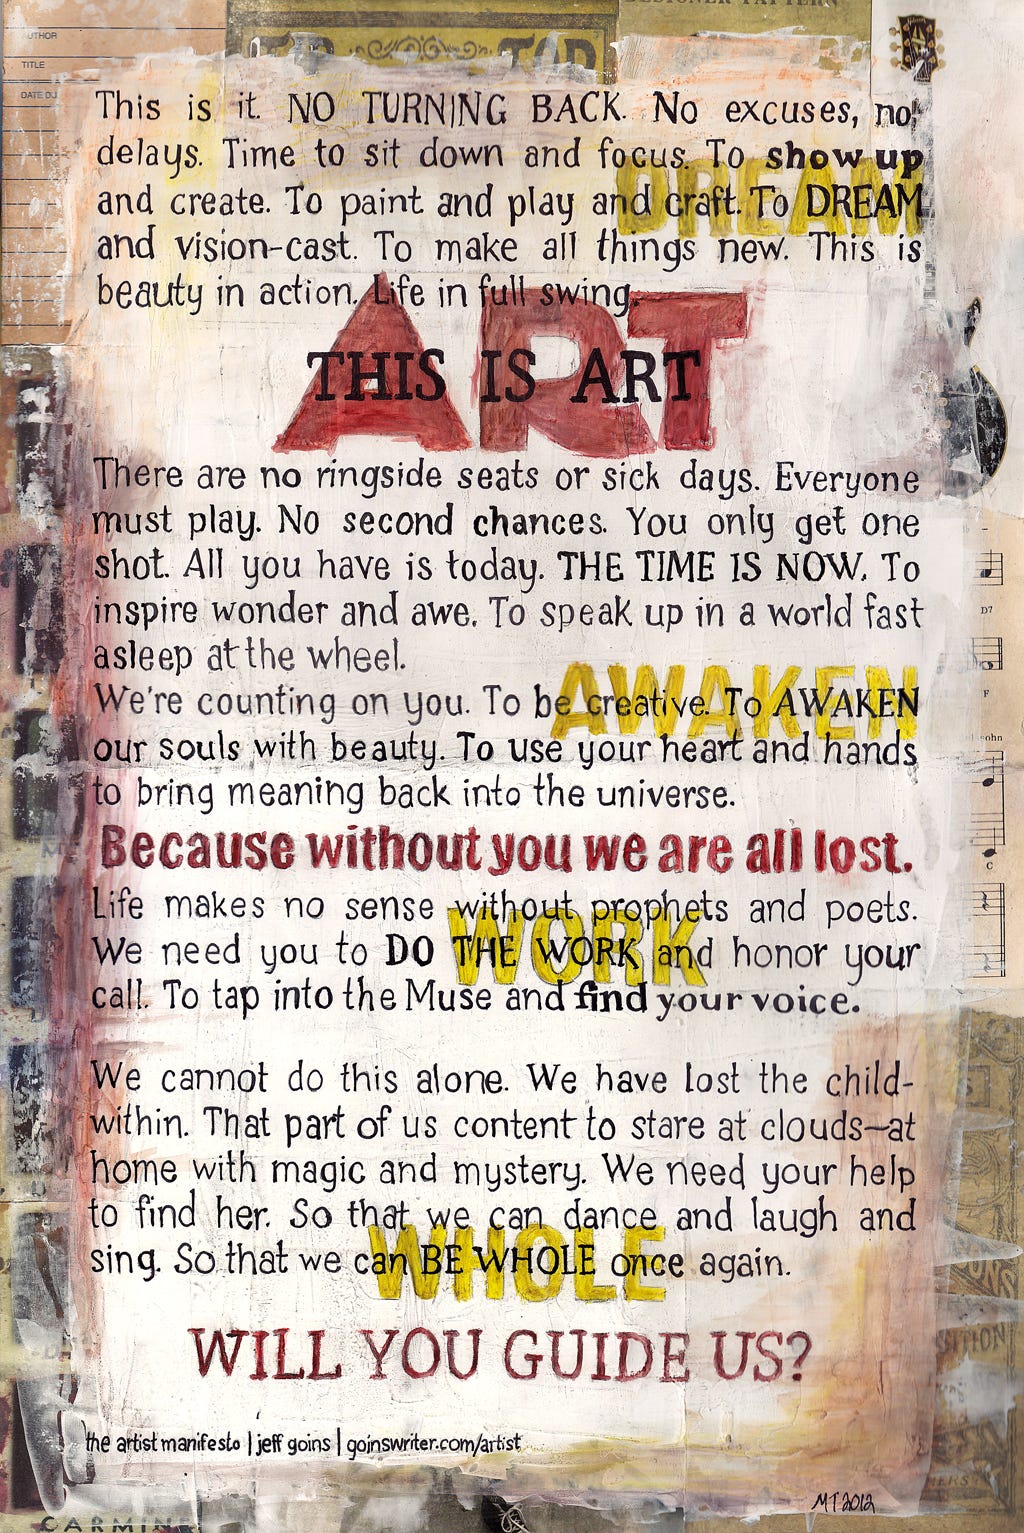 DESIGNER PATTERN
AUTHOR
TITLE
DATE DU
This is it. NO TURNING BACK. No excuses, no
delays. Time to sit down and focus. To show up
DREAM
and create. To paint and play and craft. To DREAM
and vision-cast. To make all things new. This is
beauty in action. Life in full swing.
ART
THIS IS ART
There are no ringside seats or sick days. Everyone
must play. No second chances. You only get one
shot. All you have is today. THE TIME IS NOW. To
inspire wonder and awe. To speak up in a world fast
D7
asleep at the wheel.
AWAKEN
F
We're counting on you. To be creative. To AWAKEN
our souls with beauty. To use your heart and hands
to bring meaning back into the universe.
Because without you we are all lost.
C
Life makes no sense without prophets and poets.
WORK
We need you to DO THE WORK and honor your
call. To tap into the Muse and find your voice.
We cannot do this alone. We have lost the child-
within. That part of us content to stare at clouds—at
home with magic and mystery. We need your help
to find her. So that we can dance and laugh and
WHOLE
sing. So that we can BE WHOLE once again.
WILL YOU GUIDE US?
the artist manifesto | jeff goins | goinswriter.com/artist
MT 2012
CARMINE